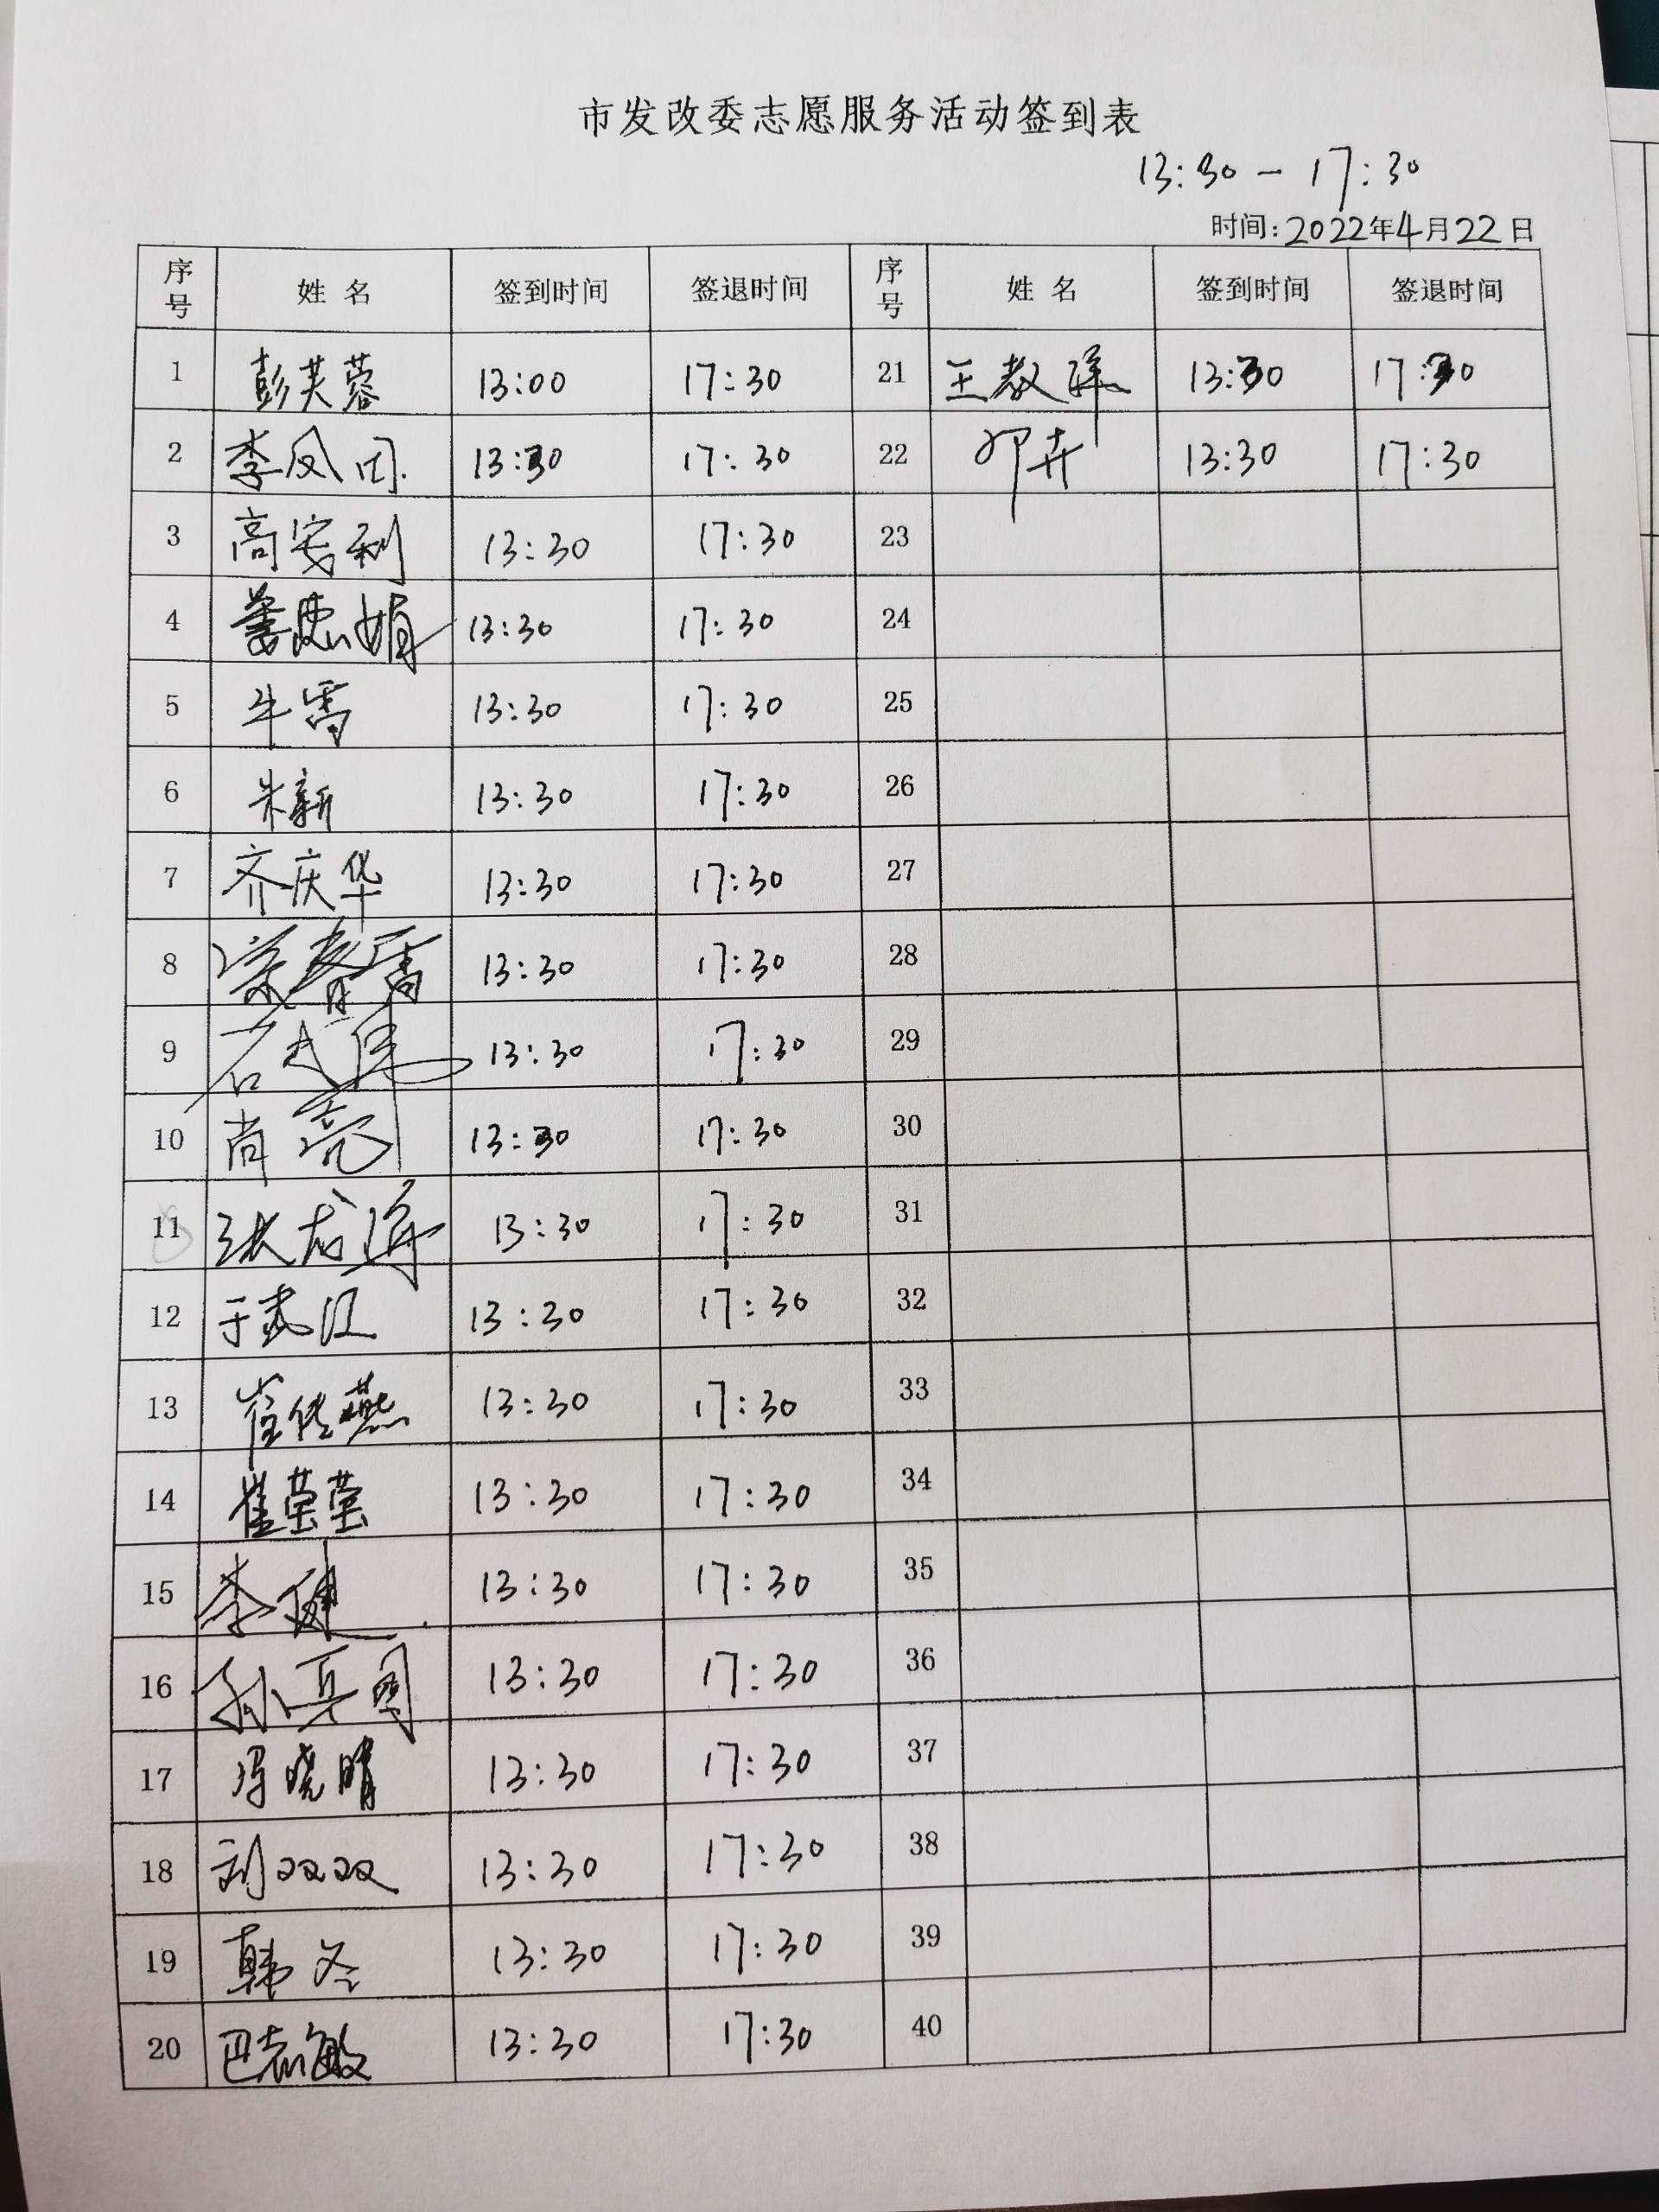 市发改委志愿服务活动签到表
13:30 — 17:30
时间：2022年4月22日
序号 姓名 签到时间 签退时间 序号 姓名 签到时间 签退时间
1 彭芙蓉 13:00 17:30 21 王教 13:30 17:30
2 李凤 13:30 17:30 22 13:30 17:30
3 高安利 13:30 17:30 23
4 娟 13:30 17:30 24
5 牛雷 13:30 17:30 25
6 朱新 13:30 17:30 26
7 齐庆华 13:30 17:30 27
8 春雷 13:30 17:30 28
9 13:30 17:30 29
10 尚亮 13:30 17:30 30
11 张龙海 13:30 17:30 31
12 于武江 13:30 17:30 32
13 崔传燕 13:30 17:30 33
14 崔莹莹 13:30 17:30 34
15 李健 13:30 17:30 35
16 孙勇 13:30 17:30 36
17 冯晓晴 13:30 17:30 37
18 刘双双 13:30 17:30 38
19 韩冬 13:30 17:30 39
20 巴志敏 13:30 17:30 40